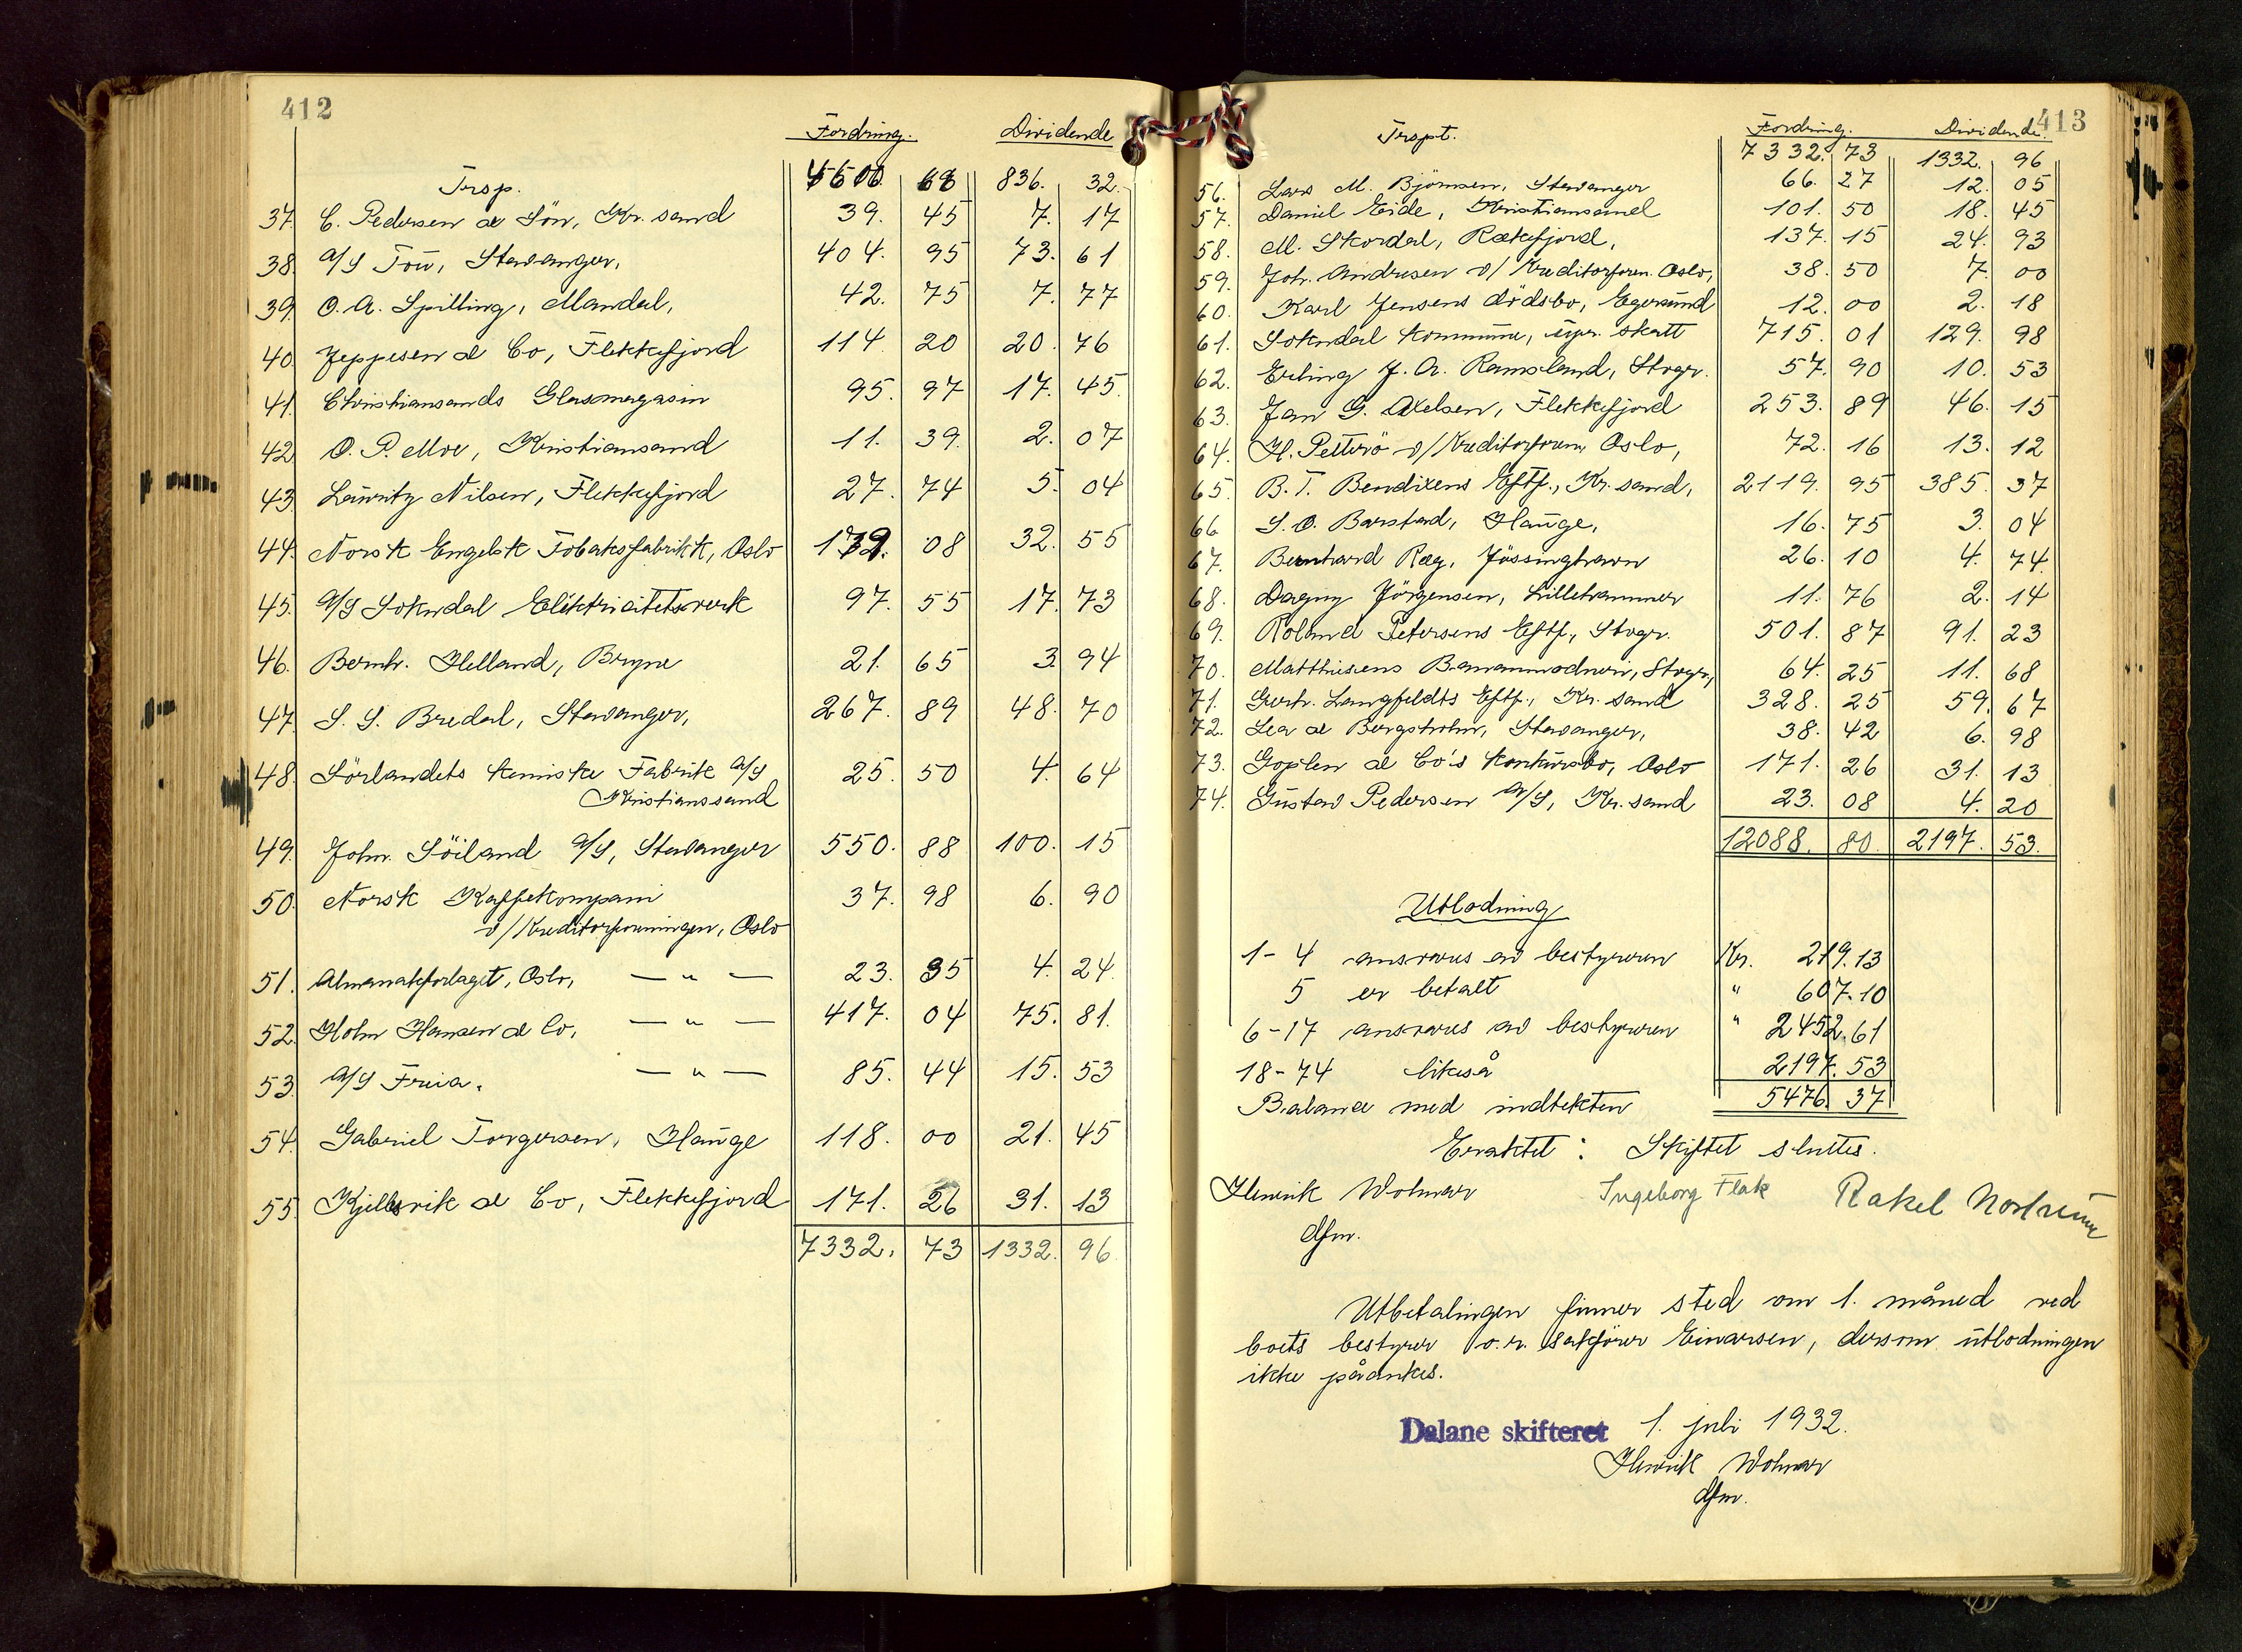 412
Fordring. Dividende
Trsp. 4600. 68 836. 32.
37. C. Pedersen & Sön, Kr. sand 39. 45 7. 17
38. A/S Tou, Stavanger, 404. 95 73. 61
39. O. A. Spilling, Mandal, 42. 75 7. 77
40. Jeppesen & Co, Flekkefjord 114. 20 20. 76
41. Christiansands Glasmagasin 95. 97 17. 45
42. O. P. Moe, Kristiansand 11. 39. 2. 07
43. Lauritz Nilsen, Flekkefjord 27. 74 5. 04
44. Norsk Engelsk Tobaksfabrikk, Oslo 179. 08 32. 55
45. A/S Sokndal Elektricitetsverk 97. 55 17. 73
46. Bernh. Helland, Bryne 21. 65 3. 94
47. S. S. Bredal, Stavanger, 267. 89 48. 70
48. Sörlandets kemiske Fabrik A/S 25. 50 4. 64
Kristianssand
49. John. Söiland A/S, Stavanger 550. 88 100. 15
50. Norsk Kaffekompani 37. 98 6. 90
v/Kreditorforeningen, Oslo
51. Almanakforlaget, Oslo, — " — 23. 35 4. 24
52. Holm Hansen & Co, — " — 417. 04 75. 81.
53. A/S Freia. — " — 85. 44 15. 53
54. Gabriel Torgersen, Hauge 118. 00 21. 45
55. Kjellesvik & Co, Flekkefjord 171. 26 31. 13
7332. 73 1332. 96
413
Fordring. Dividende.
Trspt. 7332. 73 1332. 96
56. Lars M. Björnsen, Stavanger 66. 27 12. 05
57. Daniel Eide, Kristiansand 101. 50 18. 45
58. M. Skordal, Rækefjord, 137. 15 24. 93
59. Joh. Andresen v/Kreditorforen. Oslo, 38. 50 7. 00
60. Karl Jensens dödsbo, Egersund 12. 00 2. 18
61. Sokndal kommune, upr. skatt 715. 01 129. 98
62. Erling J. A. Ramsland, Stvgr. 57. 90 10. 53
63. Jan G. Axelsen, Flekkefjord 253. 89 46. 15
64. H. Petterö v/Kreditorforen, Oslo, 72. 16 13. 12
65. B. T. Bendixens Eftf., Kr. sand, 2119. 95 385. 37
66 S. O. Barstad, Hauge, 16. 75 3. 04
67. Bernhard Ræg, Jössinghavn 26. 10 4. 74
68. Dagny Jörgensen, Lillehammer 11. 76 2. 14
69. Roland Petersens Eftf., Stvgr. 501. 87 91. 23
70. Matthiesens Bananmodneri, Stvgr., 64. 25 11. 68
71. Gerh. Langfeldts Eftf., Kr. sand 328. 25 59. 67
72. Lea & Bergsholm, Stavanger, 38. 42 6. 98
73. Goplen & Co's konkursbo, Oslo 171. 26 31. 13
74. Gustav Pedersen A/S, Kr. sand 23. 08 4. 20
12088. 80. 2197. 53.
Utlodning
1- 4 ansvares av bestyreren Kr. 219.13
5 er betalt " 607.10
6-17 ansvares av bestyreren " 2452.61
18-74 likeså 2197.53
Balance med indtekten 5476. 37
Eraktet: Skiftet sluttes.
Henrik Wolmar Ingeborg Flak Rakel
dfm.
Utbetalingen finner sted om 1. måned ved
boets bestyrer o. r. sakförer Einarsen, dersom utlodningen
ikke påankes.
Dalane skifteret 1. juli 1932.
Henrik Wolmar
dfm.